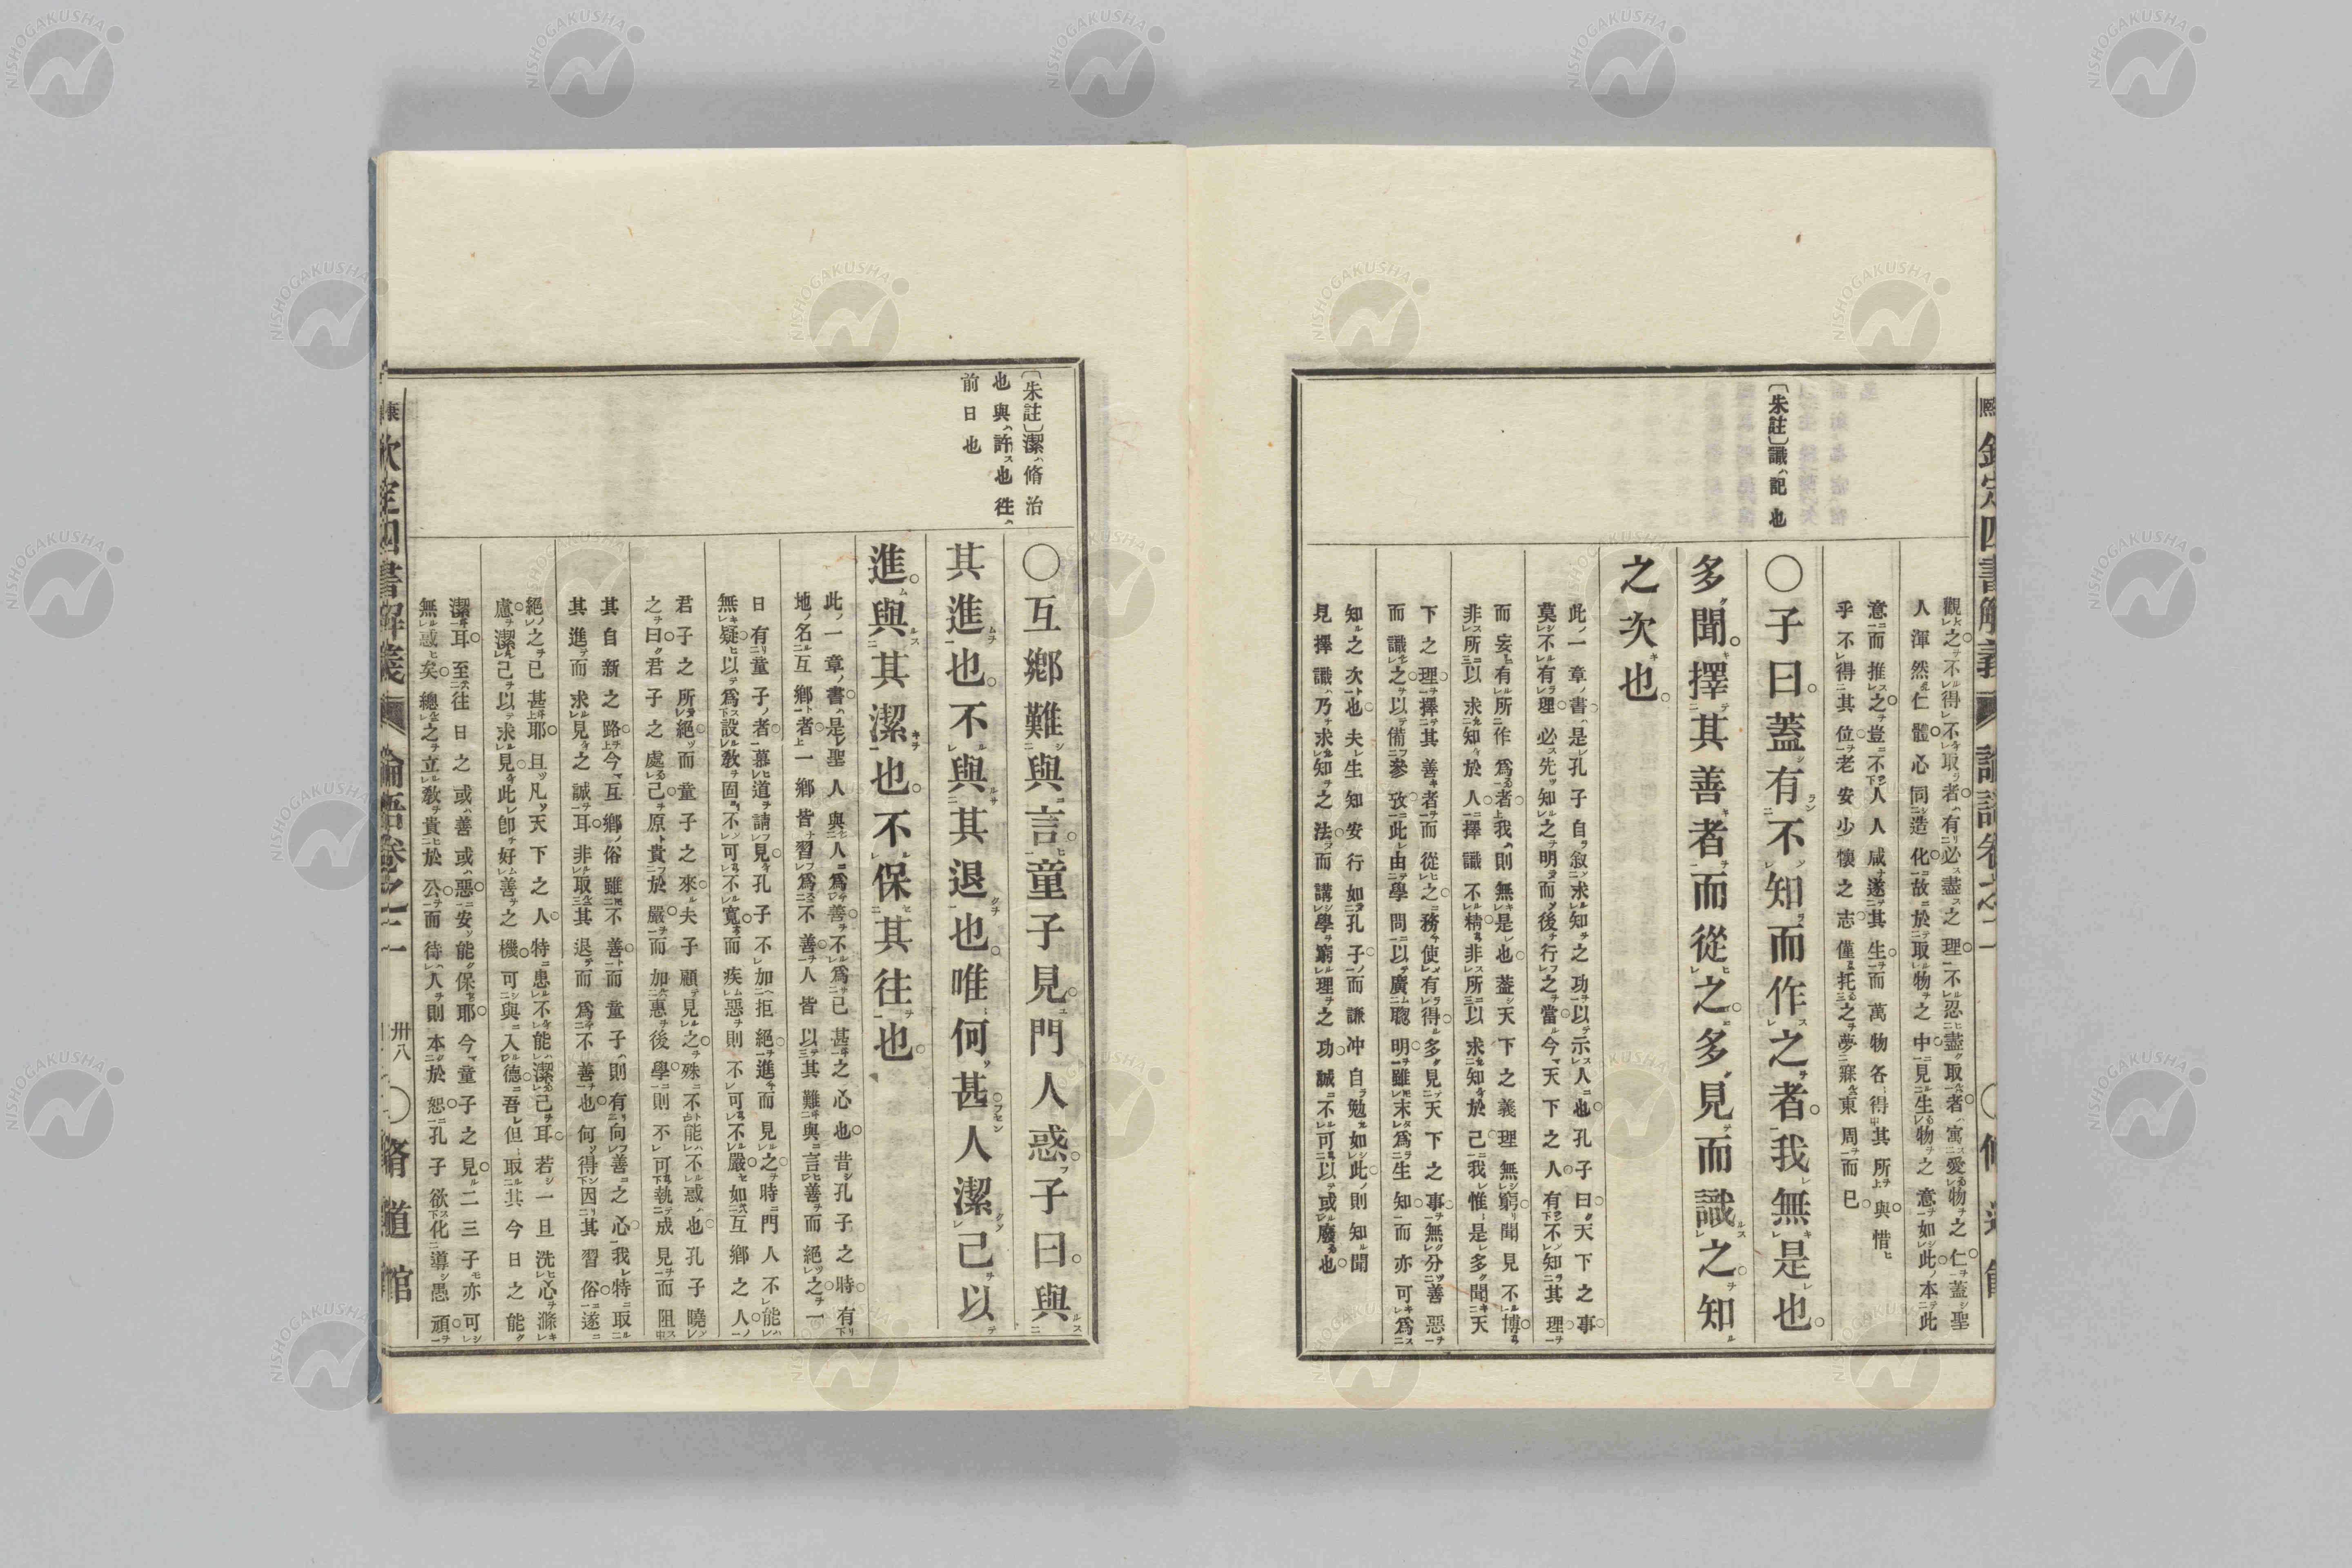 熙
欽定四書解義
論語卷之二
〔朱註〕識、記也
觀之不得不取者有必盡之理不忍盡取者寓愛物之仁蓋聖
人渾然仁體心同造化故於取物之中見生物之意如此本此
意而推之豈不人人咸遂其生而萬物各得其所與惜
乎不得其位老安少懷之志僅托之夢寐東周而已
〇子曰蓋有不知而作之者我無是也
多聞擇其善者而從之多見而識之知
之次也
此一章書是孔子自敘求知之功以示人也孔子曰天下之事
莫不有理必先知之明而後行之當今天下之人有不知其理
而妄有所作爲者我則無是也蓋天下之義理無窮聞見不博
非所以求知於人擇識不精非所以求知於己我惟是多聞天
下之理擇其善者而從之務使有得多見天下之事無分善惡
而識之以備參攷此由學問以廣聰明雖末爲生知而亦可爲
知之次也夫生知安行如孔子而謙冲自勉如此則知聞
見擇識乃求知之法而講學窮理之功誠不可以或廢也
〔朱註〕潔、脩治
也與、許也往、
前日也
〇互鄕難與言童子見門人惑子曰與
其進也不與其退也唯何甚人潔己以
進與其潔也不保其往也
此一章書是聖人與人爲善不爲己甚之心也昔孔子之時有
地名互鄕者一鄕皆習爲不善人皆以其難與言善而絕之一
日有童子者慕道請見孔子不加拒絕進而見之時門人不能
無疑以爲設敎固不可不寬而疾惡則不可不嚴如互鄕之人
君子之所絕而童子之來夫子顧見之殊不能不惑也孔子曉
之曰君子之處己原貴於嚴而加惠後學則不可執成見而阻
其自新之路今互鄕俗雖不善而童子則有向善之心我特取
其進而求見之誠耳非取其退而爲不善也何得因其習俗遂
絕之已甚耶且凡天下之人特患不能潔己耳若一旦洗心滌
慮潔己以求見此卽好善之機可與入德吾但取其今日之能
潔耳至往日之或善或惡安能保耶今童子之見二三子亦可
無惑矣總之立敎貴於公而待人則本於恕孔子欲化導愚頑
欽定四書解義
論語卷之二
卅八
〇脩道館